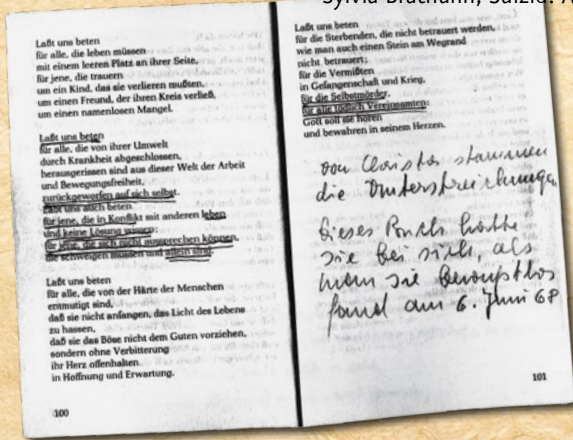 Sylvia Brathuhn, Suizid: A
Laßt uns beten
für alle, die leben müssen
mit einem leeren Platz an ihrer Seite,
für jene, die trauern
um ein Kind, das sie verlieren mußten,
um einen Freund, der ihren Kreis verließ,
um einen namenlosen Mangel.
Laßt uns beten
für alle, die von ihrer Umwelt
durch Krankheit abgeschlossen,
herausgerissen sind aus dieser Welt der Arbeit
und Bewegungsfreiheit,
zurückgeworfen auf sich selbst.
Laßt uns auch beten
für jene, die in Konflikt mit anderen leben
und keine Lösung wissen;
für jene, die sich nicht aussprechen können,
die schweigen müssen und allein sind.
Laßt uns beten
für alle, die von der Härte der Menschen
entmutigt sind,
daß sie nicht anfangen, das Licht des Lebens
zu hassen,
daß sie das Böse nicht dem Guten vorziehen,
sondern ohne Verbitterung
ihr Herz offenhalten
in Hoffnung und Erwartung.
100
Laßt uns beten
für die Sterbenden, die nicht betrauert werden,
wie man auch einen Stein am Wegrand
nicht betrauert;
für die Vermißten
in Gefangenschaft und Krieg,
für die Selbstmörder,
für alle tödlich Vereinsamten:
Gott soll sie hören
und bewahren in seinem Herzen.
von Christa stammen
die Unterstreichungen
Dieses Buch hatte
sie bei sich, als
man sie bewußtlos
fand am 6. Juni 68
101